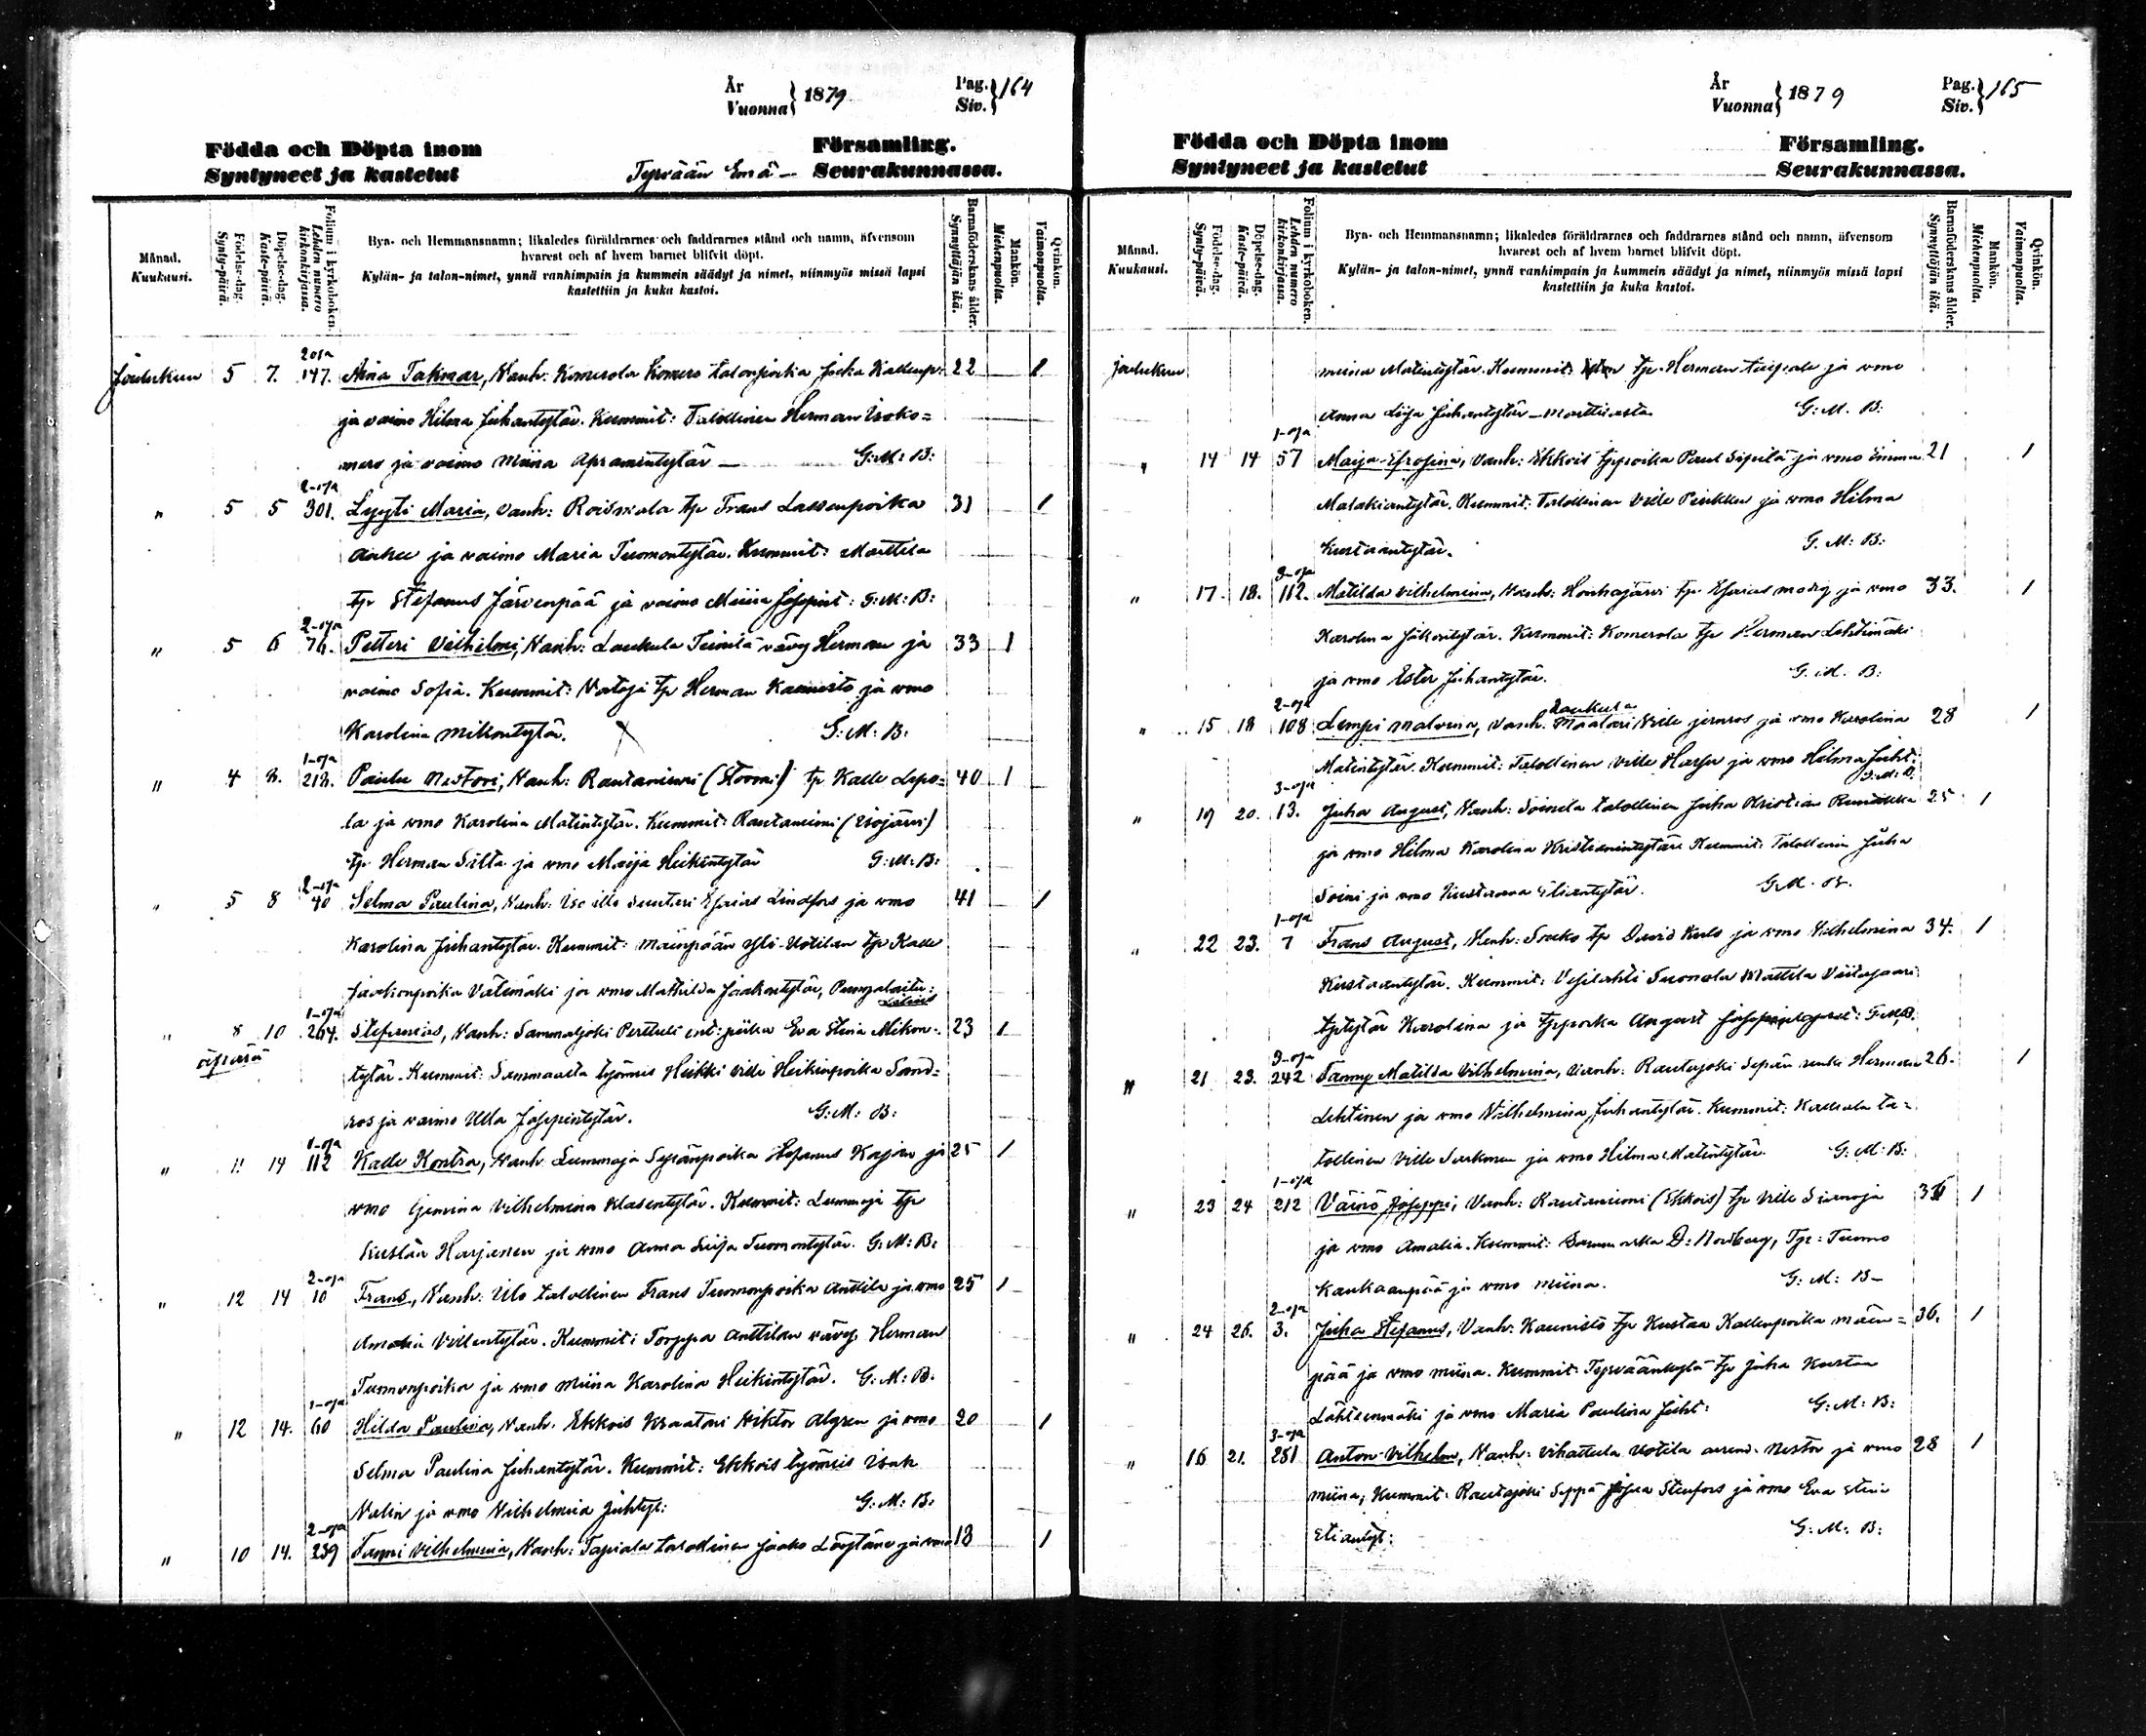 År
Vuonna } 1879
Pag.
Siv. } 164
Födda och Döpta inom Församling.
Syntyneet ja kastetut Tyrvään Emä- Seurakunnassa.
Månad.
Kuukausi.
Födelse-dag.
Synty-päivä.
Döpelse-dag.
Kaste-päivä.
Folium i kyrkoboken.
Lehden numero kirkonkirjassa.
Bya- och Hemmansnamn; likaledes föräldrarnes och faddrarnes stånd och namn, äfvensom
hvarest och af hvem barnet blifvit döpt.
Kylän- ja talon-nimet, ynnä vanhimpain ja kummein säädyt ja nimet, niinmyös missä lapsi
kastettiin ja kuka kastoi.
Barnaföderskans ålder.
Synnyttäjän ikä.
Mankön.
Miehenpuolta.
Qvinkön.
Vaimonpuolta.
Joulukuu 5 7. 147. Aina Vanh: Komerola Komero talonpoika Kallenp. 22 1
ja vaimo Hilma Juhantytär. Kummit: Talollinen Herman Isoko=
mero ja vaimo Miina Apramintytär — G: M: B:
" 5 5 301. Lyyti Maria, Vanh: Roismala tp Frans Lassenpoika 31 1
ja vaimo Maria Tuomontytär. Kummit: Marttila
tp Stefanus Järvenpää ja vaimo Miina G: M: B:
" 5 6 76. Petteri Vilhelmi, Vanh: Laukula vävy Herman ja 33 1
vaimo Sofia. Kummit: Vataja tp Herman Kaunisto ja vmo
Karolina Mikontytär. G: M: B:
" 4 8. 218. Paulu Nestori, Vanh: Rautaniemi (Stormi) tp Kalle Lepo= 40 1
la ja vmo Karolina Matintytär. Kummit: Rautaniemi (Isojärvi)
tp Herman Silta ja vmo Maija Heikintytär G: M: B:
" 5 8 40 Selma Paulina, Vanh: suutari Esaias Lindfors ja vmo 41 1
Karolina Juhantytär. Kummit: Yli-Uotilan tp Kalle
Jaakonpoika Vätimäki ja vmo Mathilda Jaakontytär,
" 8 10 264. Stefanus, Vanh: Sammaljoki Perttuli piika Eva Stina Mikon- 23 1
äpärä
tytär. Kummit: työmies Heikki Ville Heikinpoika Sand=
ros ja vaimo Ulla Joseppintytär. G: M: B:
" 11 14 112 Kalle Kontra, Vanh Lummaja Stefanus ja 25 1
vmo Vilhelmina Klasentytär. Kummit: Lummaja tp
Kustaa Harjanen ja vmo Anna Liisa Tuomontytär. G: M: B:
" 12 14 10 Frans, Vanh: Ulo talollinen Frans Tuomonpoika Anttila ja vmo 25 1
Amalia Villentytär. Kummit: Torppa Anttilan vävy Herman
Tuomonpoika ja vmo Miina Karolina Heikintytär. G: M: B:
" 12 14. 60 Hilda Paulina, Vanh. Ekkois Kraatari Viktor Algren ja vmo 20 1
Selma Paulina Juhantytär. Kummit: Ekkois työmies Isak
Nalin ja vmo Vilhelmina Juhtyt: G: M: B:
" 10 14. 239 Fanni Vilhelmina, Vanh: Tapiala talollinen Jaako Löytäne ja vmo 18 1
År
Vuonna } 1879
Pag.
Siv. } 165
Födda och Döpta inom Församling.
Syntyneet ja kastetut Seurakunnassa.
Månad.
Kuukausi.
Födelse-dag.
Synty-päivä.
Döpelse-dag.
Kaste-päivä.
Folium i kyrkoboken.
Lehden numero kirkonkirjassa.
Bya- och Hemmansnamn; likaledes föräldrarnes och faddrarnes stånd och namn, äfvensom
hvarest och af hvem barnet blifvit döpt.
Kylän- ja talon-nimet, ynnä vanhimpain ja kummein säädyt ja nimet, niinmyös missä lapsi
kastettiin ja kuka kastoi.
Barnaföderskans ålder.
Synnyttäjän ikä.
Mankön.
Miehenpuolta.
Qvinkön.
Vaimonpuolta.
Joulukuu miina Matintytär. Kummit: tp. Herman ja vmo
Anna Liisa Juhantytär — G: M: B:
" 14 14 57 Maija Efrosina, Vanh: Ekkois tp:poika Paul Sipilä ja vmo Emma 21 1
Malakiantytär. Kummit: Talollinen Ville Pirkku ja vmo Hilma
Kustaantytär. G: M: B:
" 17. 18. 112. Matilda Vilhelmina, Vanh: Houhajärvi tp Esaias ja vmo 33. 1
Karolina Kummit: Komerola tp Herman Lehtimäki
ja vmo Ester Juhantytär. G: M: B:
Laukula
" 15 18 108 Lempi Malvina, Vanh. Maalari Ville ja vmo Karolina 28 1
Matintytär. Kummit: Talollinen Ville ja vmo Hilma Juht:
G: M: B:
" 19 20. 13. Juha August, Vanh: Soinila talollinen Juha Kristian 25 1
ja vmo Hilma Karolina Kristianintytär. Kummit: Talollinen Juha
Soini ja vmo Kustaava Eliantytär. G: M: B.
" 22 23. 7 Frans August, Vanh: tp David ja vmo Vilhelmina 34. 1
Kustaantytär. Kummit: Vesilahti Mattila
tp:tytär Karolina ja tp:poika August G: M: B.
" 21 23. 242 Fanny Matilda Vilhelmina, Vanh: Rautajoki Sepän renki Herman 26. 1
Lehtinen ja vmo Vilhelmina Juhantytär. Kummit: ta=
lollinen Ville ja vmo Hilma Matintytär. G: M: B:
" 23 24 212 Väinö Joseppi, Vanh: Rautaniemi (Ekkois) tp Ville ja 1
ja vmo Amalia. Kummit: D: Nordberg, Tp: Tuomo
Kaukaanpää ja vmo Miina. G: M: B—
" 24 26. 3. Juha Stefanus, Vanh: Kaunisto tp Kustaa Kallenpoika Mäen= 36. 1
pää ja vmo Miina. Kummit: Tyrväänkylä tp Juha Kustaa
Lähteenmäki ja vmo Maria Paulina Juht: G: M: B:
" 16 21. 281 Anton Vilhelm, Vanh: Vihattula Uotila Nestor ja vmo 28 1
Miina; Kummit: Rautajoki Seppä Stenfors ja vmo Eva Stina
Eliantyt: G: M: B: